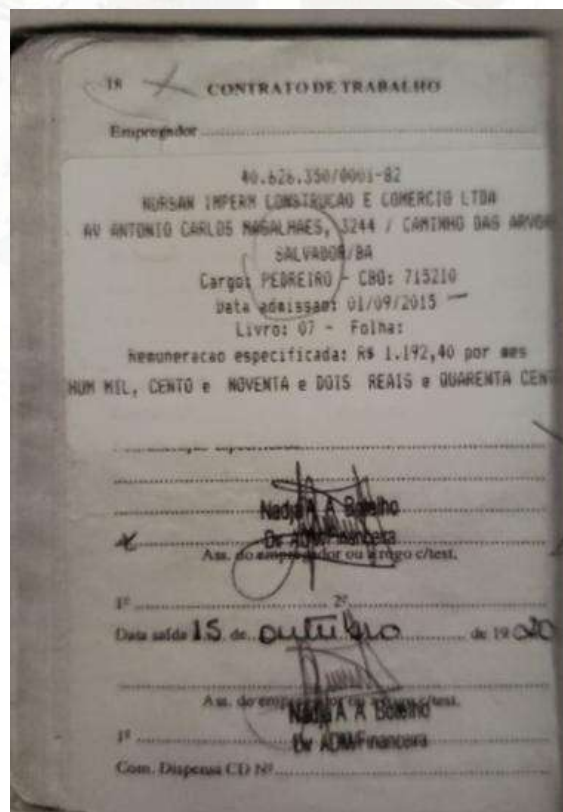 18 CONTRATO DE TRABALHO
Empregador
40.626.350/0001-82
NORSAN IMPERM CONSTRUCAO E COMERCIO LTDA
AV ANTONIO CARLOS MAGALHAES, 3244 / CAMINHO DAS ARVOR
SALVADOR/BA
Cargo: PEDREIRO - CBO: 715210
Data admissao: 01/09/2015
Livro: 07 - Folha:
Remuneracao especificada: R$ 1.192,40 por mes
HUM MIL, CENTO e NOVENTA e DOIS REAIS e QUARENTA CENT
Nadja A A Botelho
Dir ADM/Financeira
Ass. do empregador ou a rogo c/test.
1º 2º
Data saída 15 de outubro de 19 2020
Ass. do empregador ou a rogo c/test.
Nadja A A Botelho
1º Dir ADM/Financeira
Com. Dispensa CD Nº